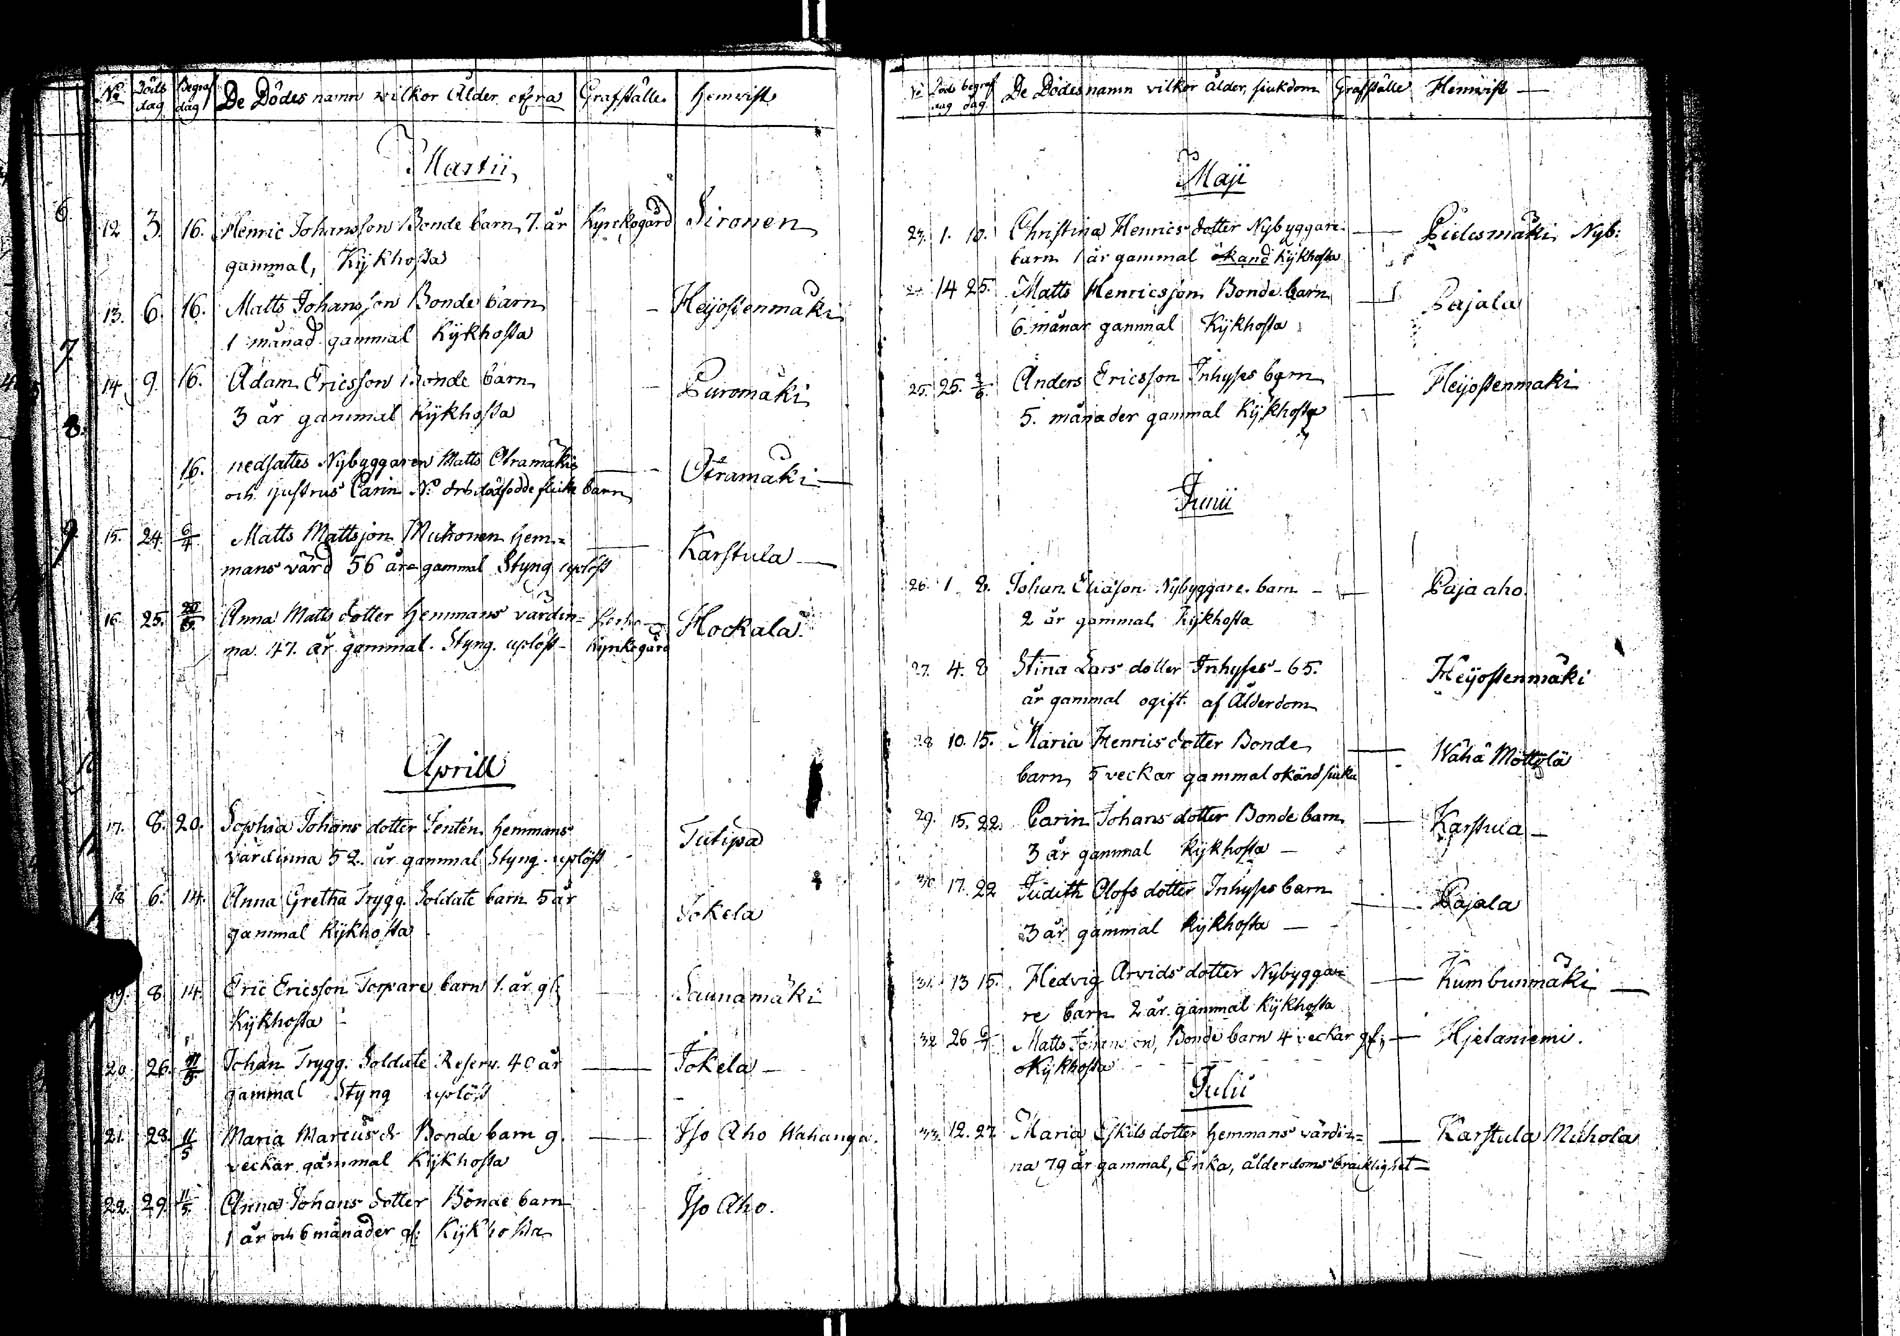 No Döds dag Begraf dag De Dödes namn vilkor Ålder etc:ra Grafställe Hemvist
Martii,
12 3. 16. Henric Johansson Bonde barn 7. år Kyrckogård Sironen
gammal, Kykhosta
13. 6. 16. Matts Johansson Bonde barn Heijostenmäki
1 månad gammal Kykhosta
14. 9. 16. Adam Ericsson Bonde barn Puromäki
3 år gammal Kykhosta
16. nedsattes Nybyggaren Matts Otramäkis Otramäki
och hustrus Carin dödfödde flicke barn
15. 24. 6/4 Matts Mattsson Muhonen hem= Karstula
mans värd 56 år gammal Styng uplöst
16 25. Anna Matts dotter Hemmans värdin= Hockala
na 47. år gammal. Styng. uplöst Kyrkogård
Aprill
17. 8. 20. Sophia Johans dotter Hemmans Tulipa
värdinna 52. år gammal Styng. uplöst
18 6. 14. Anna Gretha Trygg Soldate barn 5 år Tokela
gammal Kykhosta
19. 8. 14. Eric Ericsson Torpare barn 1. år gl. Saunamäki
Kykhosta
20. 26. Johan Trygg. Soldate Reserv. 40 år Tokela
gammal Styng uplöst
21. 28. 11/5 Maria Marcus dr Bonde barn 9. Iso Aho Wahanga.
veckar gammal Kykhosta
22. 29. 11/5 Anna Johans dotter Bonde barn Iso Aho.
1 år och 6 månader gl: Kykhosta
No Döds dag begraf dag. De Dödes namn vilkor ålder, siukdom Grafställe Hemvist
Maji
23. 1. 10. Christina Henrics dotter Nybyggare Pidesmäki Nyb:
barn 1 år gammal okänd Kykhosta
24. 14 25. Matts Henricsson Bonde barn Pajala
6. månar gammal Kykhosta
25. 25. Anders Ericsson Inhyses barn Heijostenmaki
5. månader gammal Kykhosta
Junii
26. 1. 8. Johan Eliason Nybyggare barn Pajaaho.
2 år gammal Kykhosta
27. 4. 8 Stina Lars dotter Inhyses 65. Heijostenmäki
år gammal ogift. af Ålderdom
28 10. 15. Maria Henrics dotter Bonde Wähä Mottölä
barn, 5 veckar gammal okänd siuka
29. 15. 22. Carin Johans dotter Bonde barn Karstula
3 år gammal Kykhosta
30 17. 22 Judith Olofs dotter Inhyses barn Pajala
3 år gammal Kykhosta
31. 13 15. Hedvig Arvids dotter Nybygga= Kumbunmäki
re barn 2 år gammal Kykhosta
32 26 Matts Johansson, Bonde barn 4 veckar gl; Hjetaniemi.
Kykhosta
Julii
33. 12. 27. Maria Eskils dotter Hemmans värdin= Karstula Muhola
na 79 år gammal, Enka, ålderdoms bräcklighet